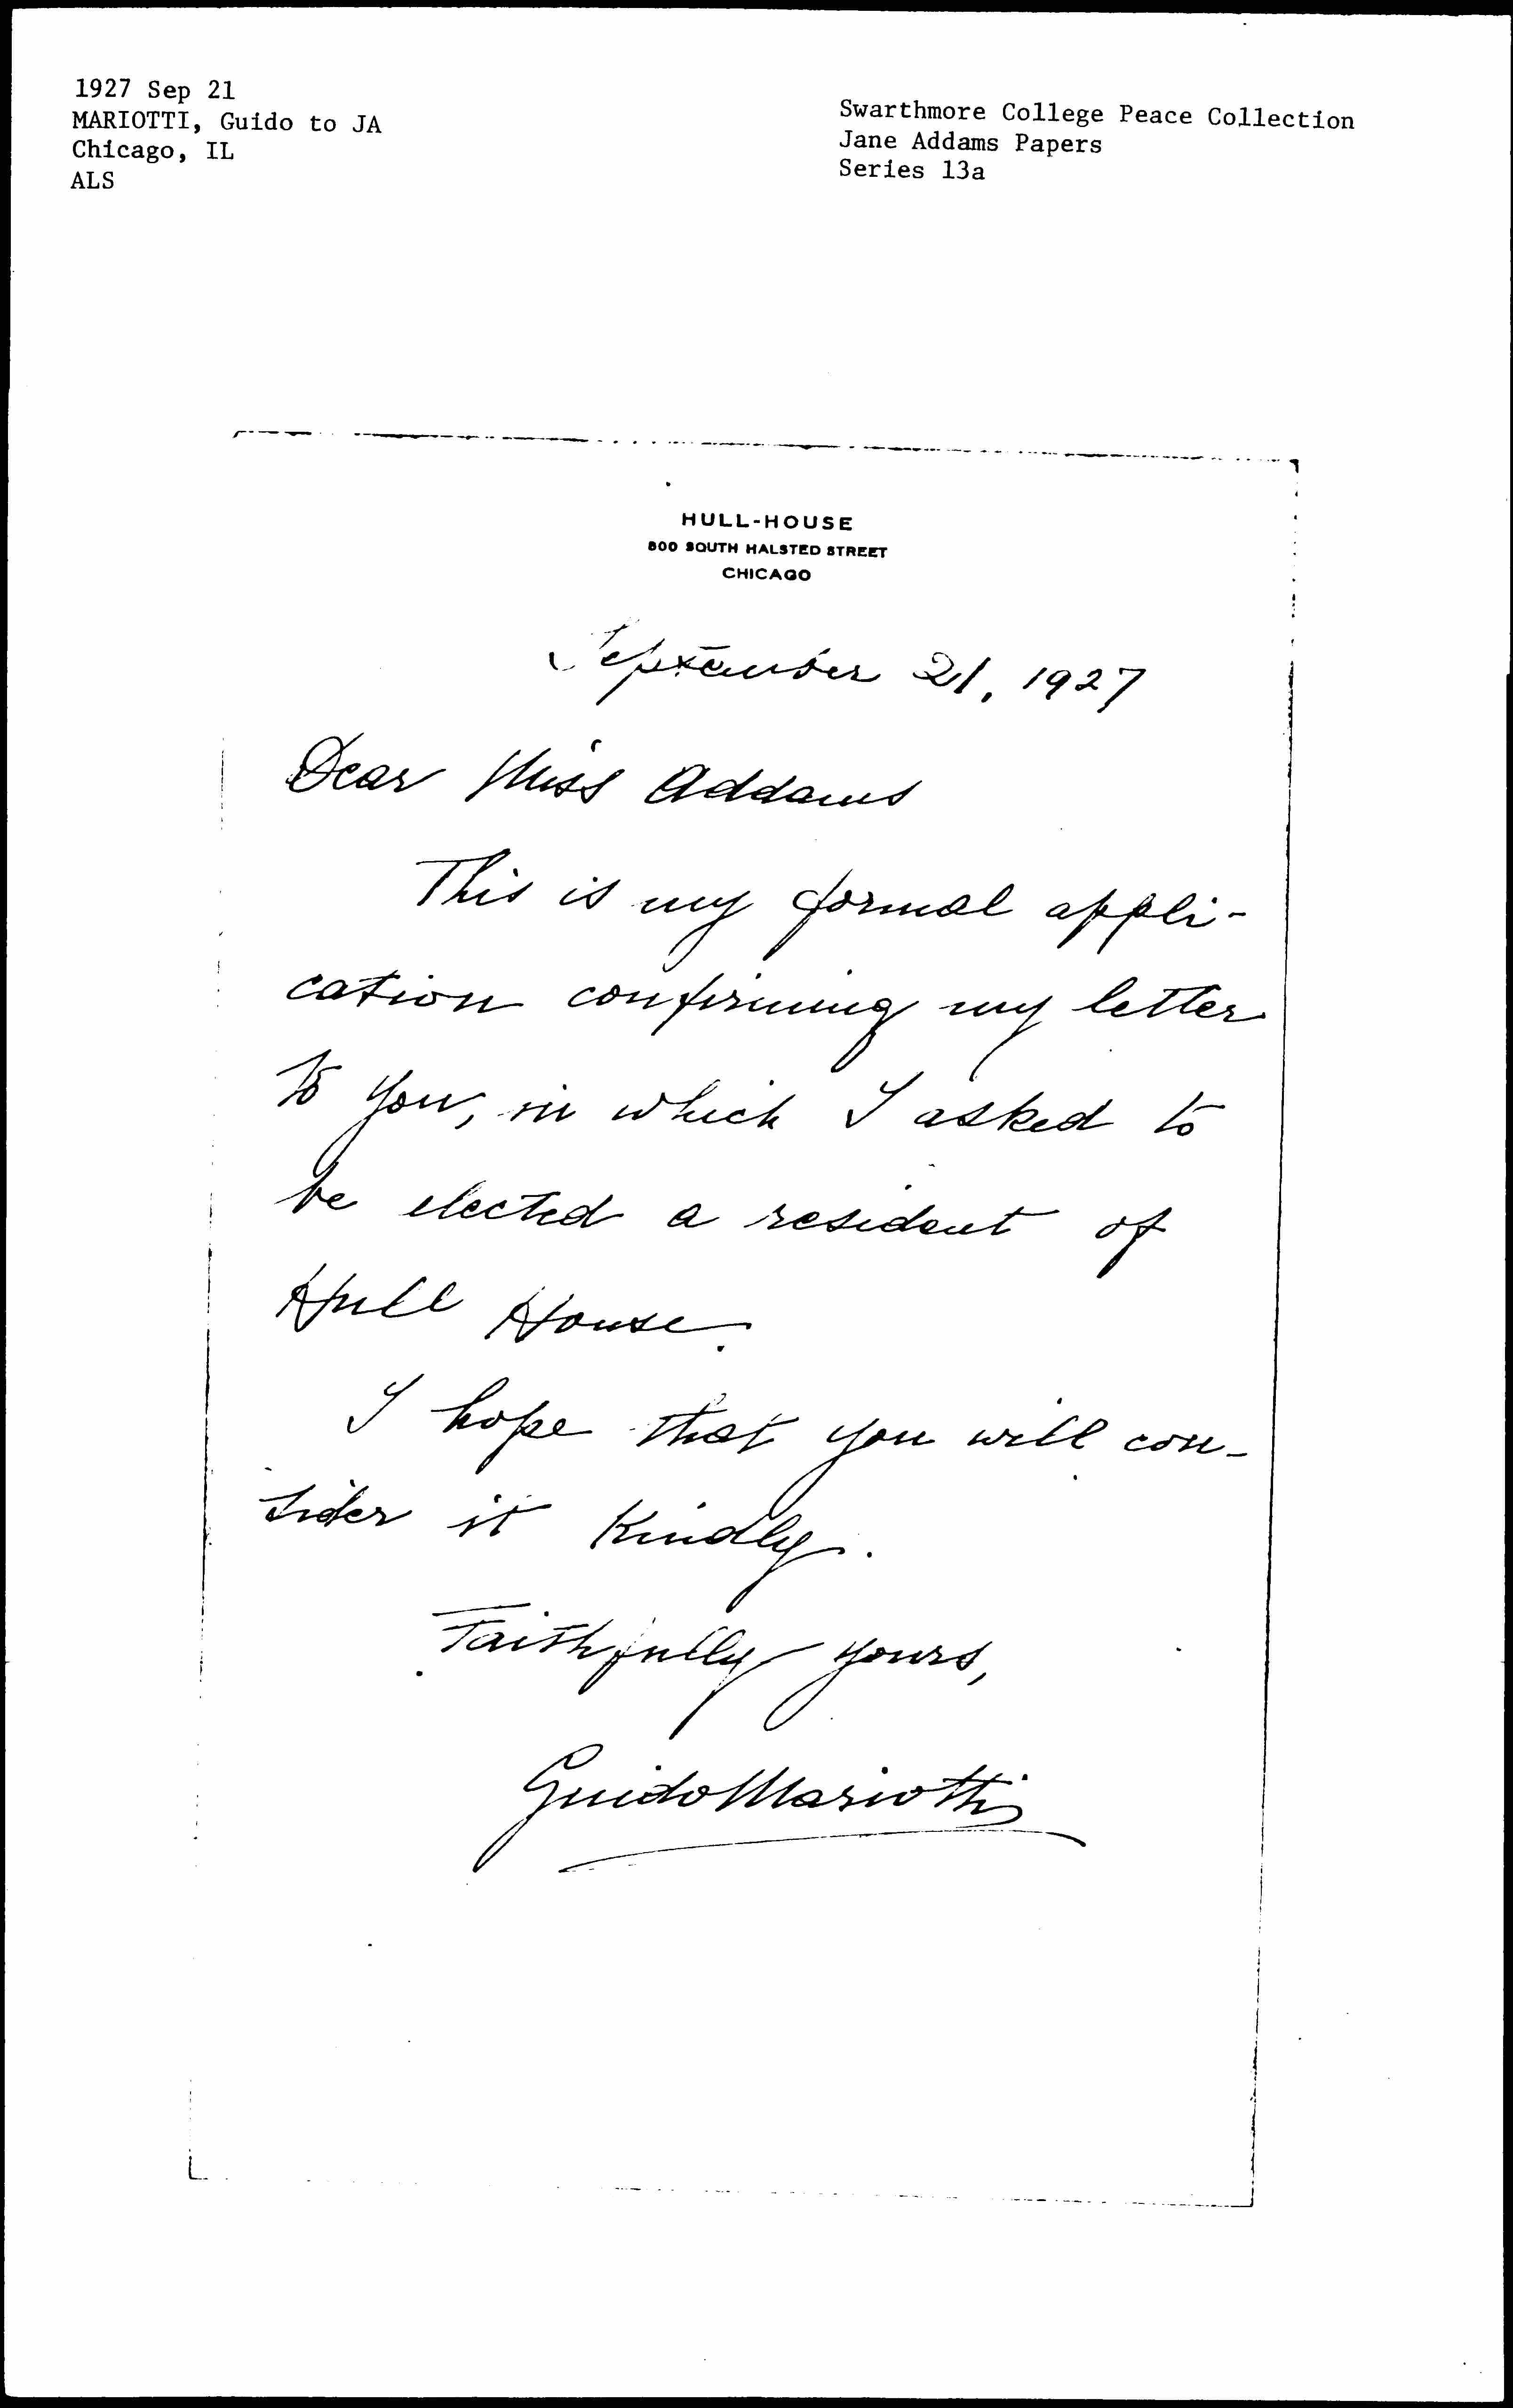 1927 Sep 21
MARIOTTI, Guido to JA
Chicago, IL
ALS
Swarthmore College Peace Collection
Jane Addams Papers
Series 13a
HULL-HOUSE
800 SOUTH HALSTED STREET
CHICAGO
September 21, 1927
Dear Miss Addams
This is my formal appli-
cation confirming my letter
to you, in which I asked to
be elected a resident of
Hull House.
I hope that you will con-
sider it kindly.
Faithfully yours,
Guido Mariotti